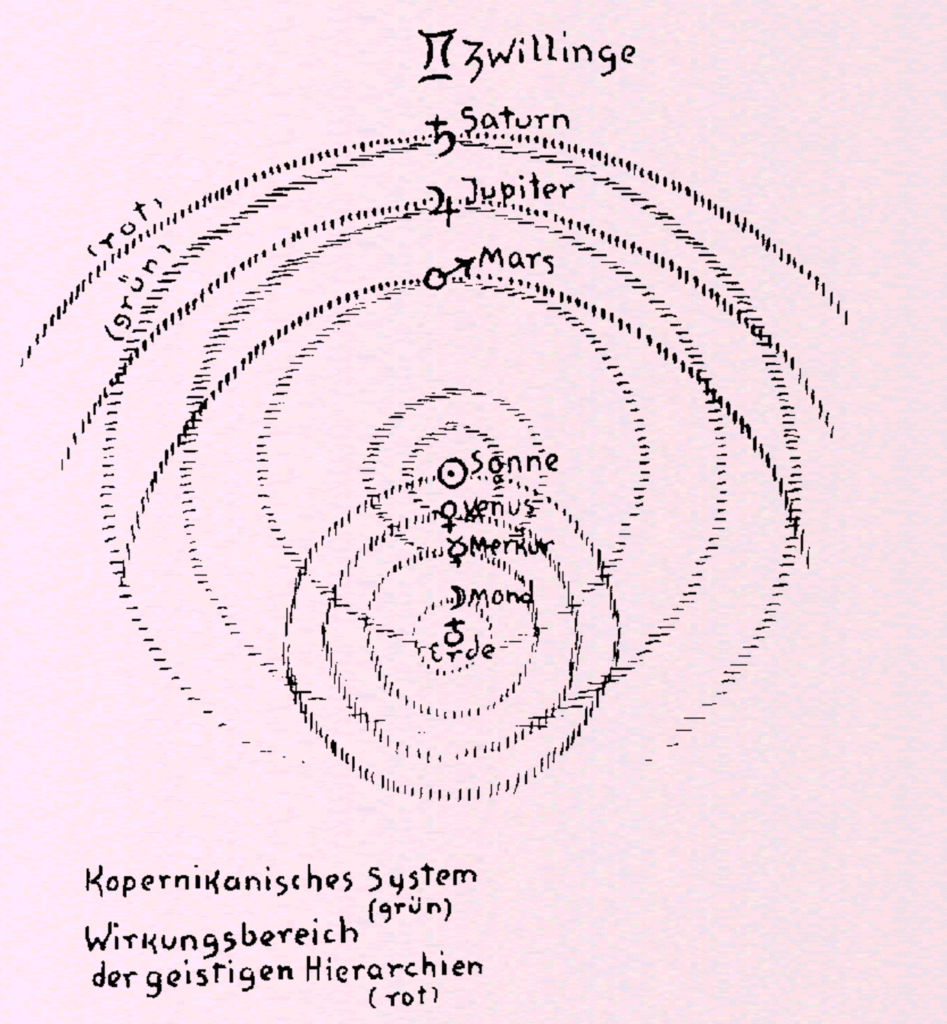 ♊ Zwillinge
♄ Saturn
♃ Jupiter
(rot)
(grün)
♂ Mars
☉ Sonne
♀ Venus
☿ Merkur
☽ Mond
♁
Erde
Kopernikanisches System
(grün)
Wirkungsbereich
der geistigen Hierarchien
(rot)